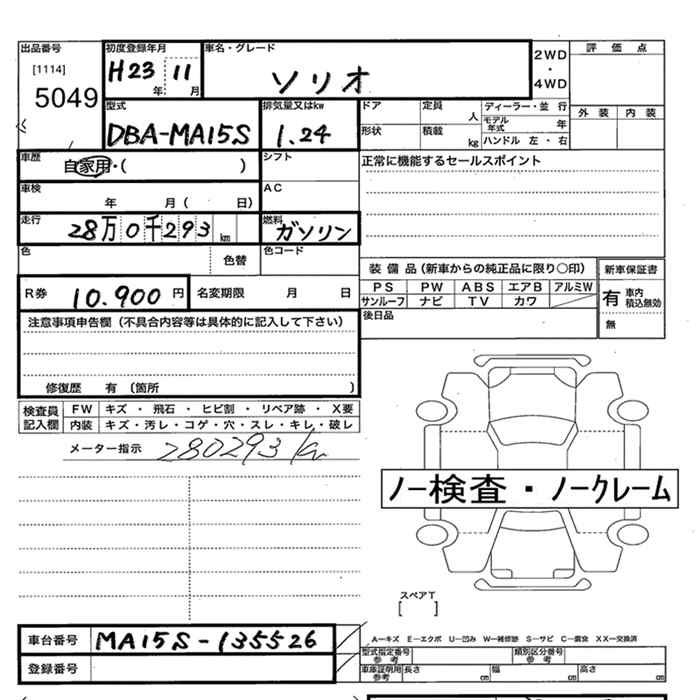 出品番号 初度登録年月 車名・グレード 2WD 評価点
[1114] H23 11 ソリオ ・
5049 年 月 4WD 外装 内装
型式 排気量又はkw ドア 定員 人 ディーラー・並行
DBA-MA15S 1.24 形状 積載 kg モデル年式 年
ハンドル 左・右
車歴 自家用・( ) シフト 正常に機能するセールスポイント
車検 年 月( 日) AC
走行 28万0千293km 燃料 ガソリン
色 色替 色コード 装備品(新車からの純正品に限り○印) 新車保証書
R券 10.900円 名変期限 月 日 PS PW ABS エアB アルミW 有 車内積込無効
サンルーフ ナビ TV カワ 無
注意事項申告欄(不具合内容等は具体的に記入して下さい) 後日品
修復歴 有 (箇所 )
検査員記入欄 FW キズ・飛石・ヒビ割・リペア跡・X要
内装 キズ・汚レ・コゲ・穴・スレ・キレ・破レ
メーター指示 280293km
ノー検査・ノークレーム
スペアT
[ ]
車台番号 MA15S-135526 A−キズ E−エクボ U−凹み W−補修跡 S−サビ C−腐食 XX−交換済
登録番号 型式指定番号 参考 類別区分番号 参考
車庫証明用 参考 長さ cm 幅 cm 高さ cm